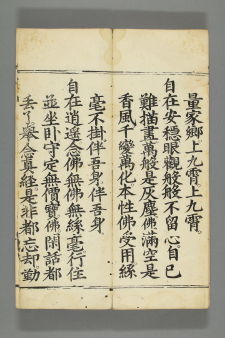 量家鄉上九霄上九霄。
自在安穩眼觀般般不留心自己
難描畫萬般是灰塵佛滿空是
香風千變萬化本性佛受用絲
毫不掛伴吾身伴吾身
自在逍遙念佛無佛無絲毫行住
並坐卧守定無價寶佛閑話都
丢了舉念真經是非都忘却動